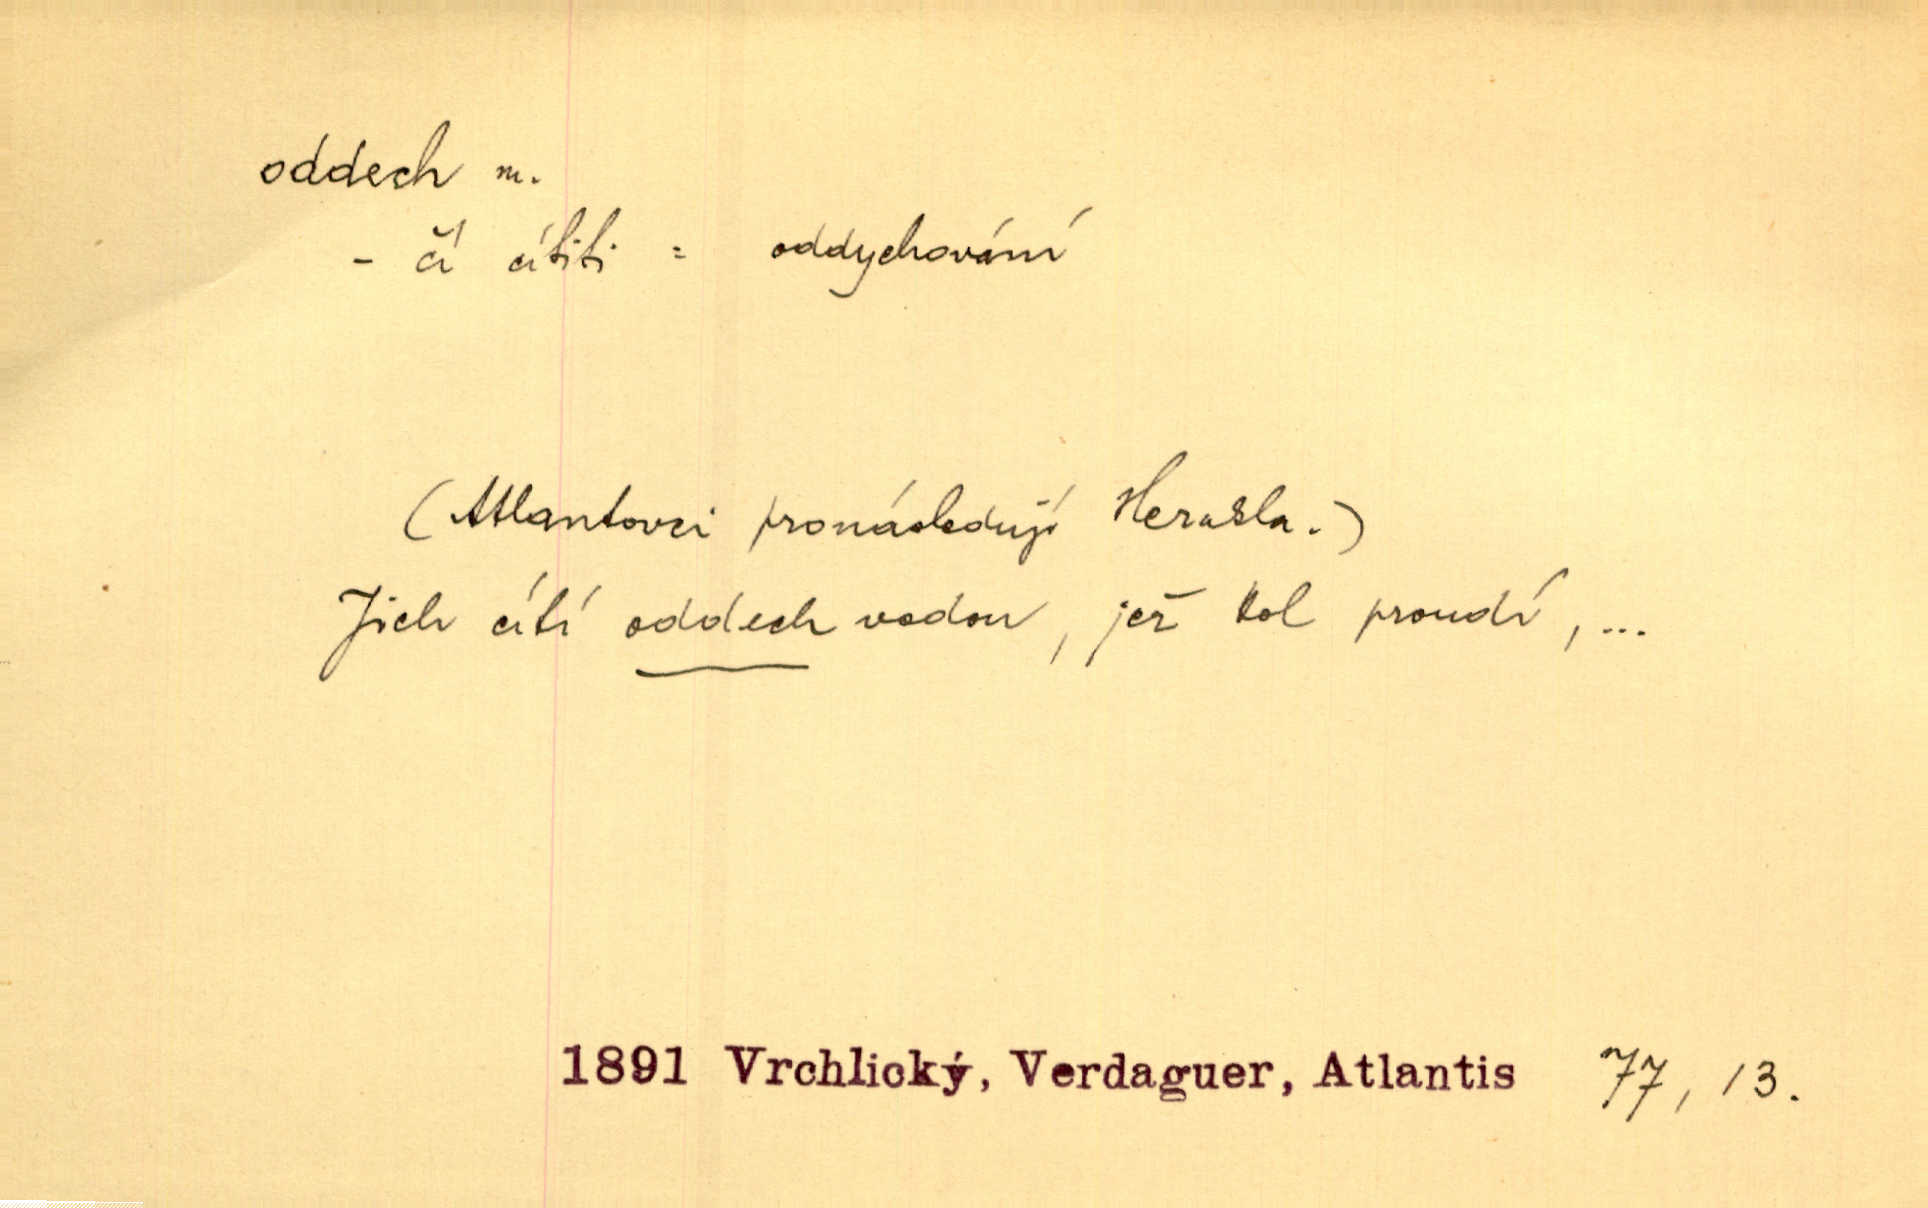 oddech m.
- čí cítiti = oddychování
(Atlantovci pronásledují Herakla.)
Jich cítí oddech vodou, jež kol proudí, ...
1891 Vrchlický, Verdaguer, Atlantis 77, 13.